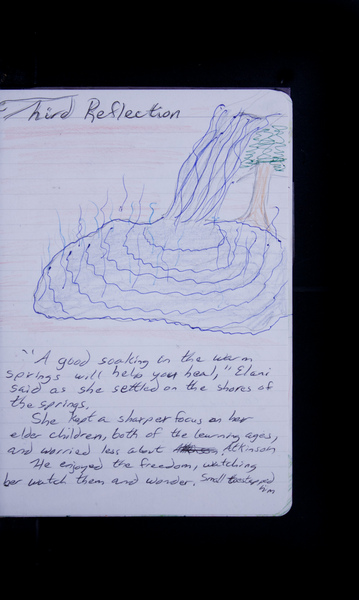 Third Reflection
"A good soaking in the warm
springs will help you heal," Elani
said as she settled on the shores of
the springs.
She kept a sharper focus on her
elder children, both of the learning ages,
and worried less about Atkinson
He enjoyed the freedom, watching
her watch them and wonder. Small
him